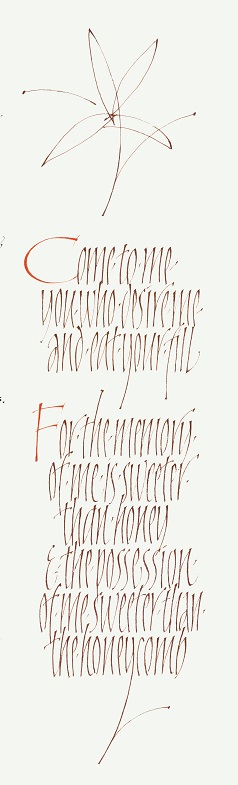 Come·to·me·
you·who·desire·me·
and·eat·your·fill
For·the·memory·
of·me·is·sweeter·
than·honey
& the possession·
of·me·sweeter·than·
the honeycomb